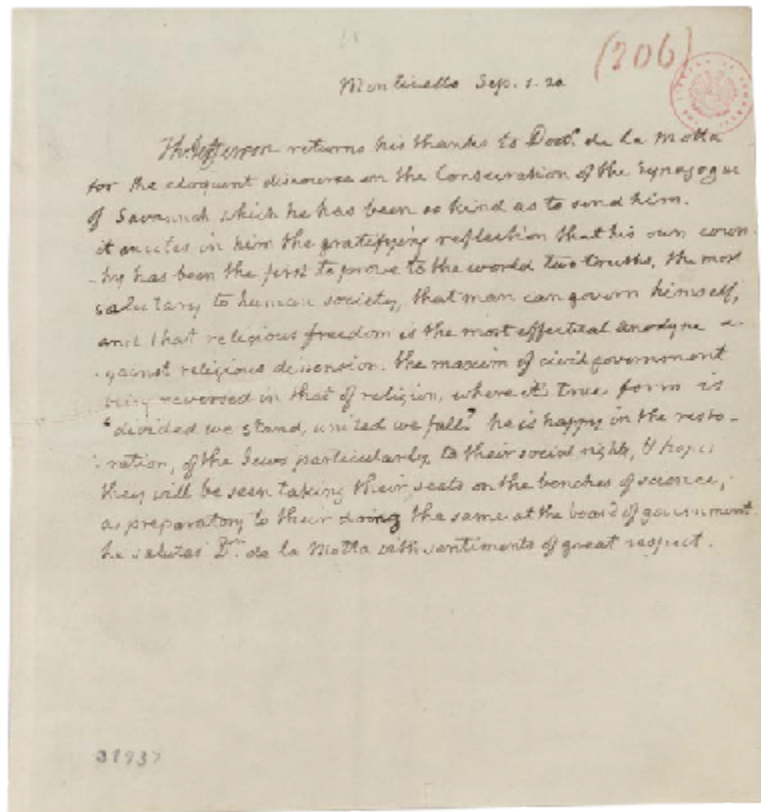 (206)
Monticello Sep. 1. 20
Th: Jefferson returns his thanks to Doctr. de la Motta
for the eloquent discourse on the Consecration of the Synagogue
of Savannah which he has been so kind as to send him.
it excites in him the gratifying reflection that his own coun-
-try has been the first to prove to the world two truths, the most
salutary to human society, that man can govern himself,
and that religious freedom is the most effectual anodyne a-
-gainst religious dissension: the maxim of civil government
being reversed in that of religion, where it's true form is
"divided we stand, united we fall." he is happy in the resto-
-ration, of the Jews particularly, to their social rights, & hopes
they will be seen taking their seats on the benches of science,
as preparatory to their doing the same at the board of government.
he salutes Dr. de la Motta with sentiments of great respect.